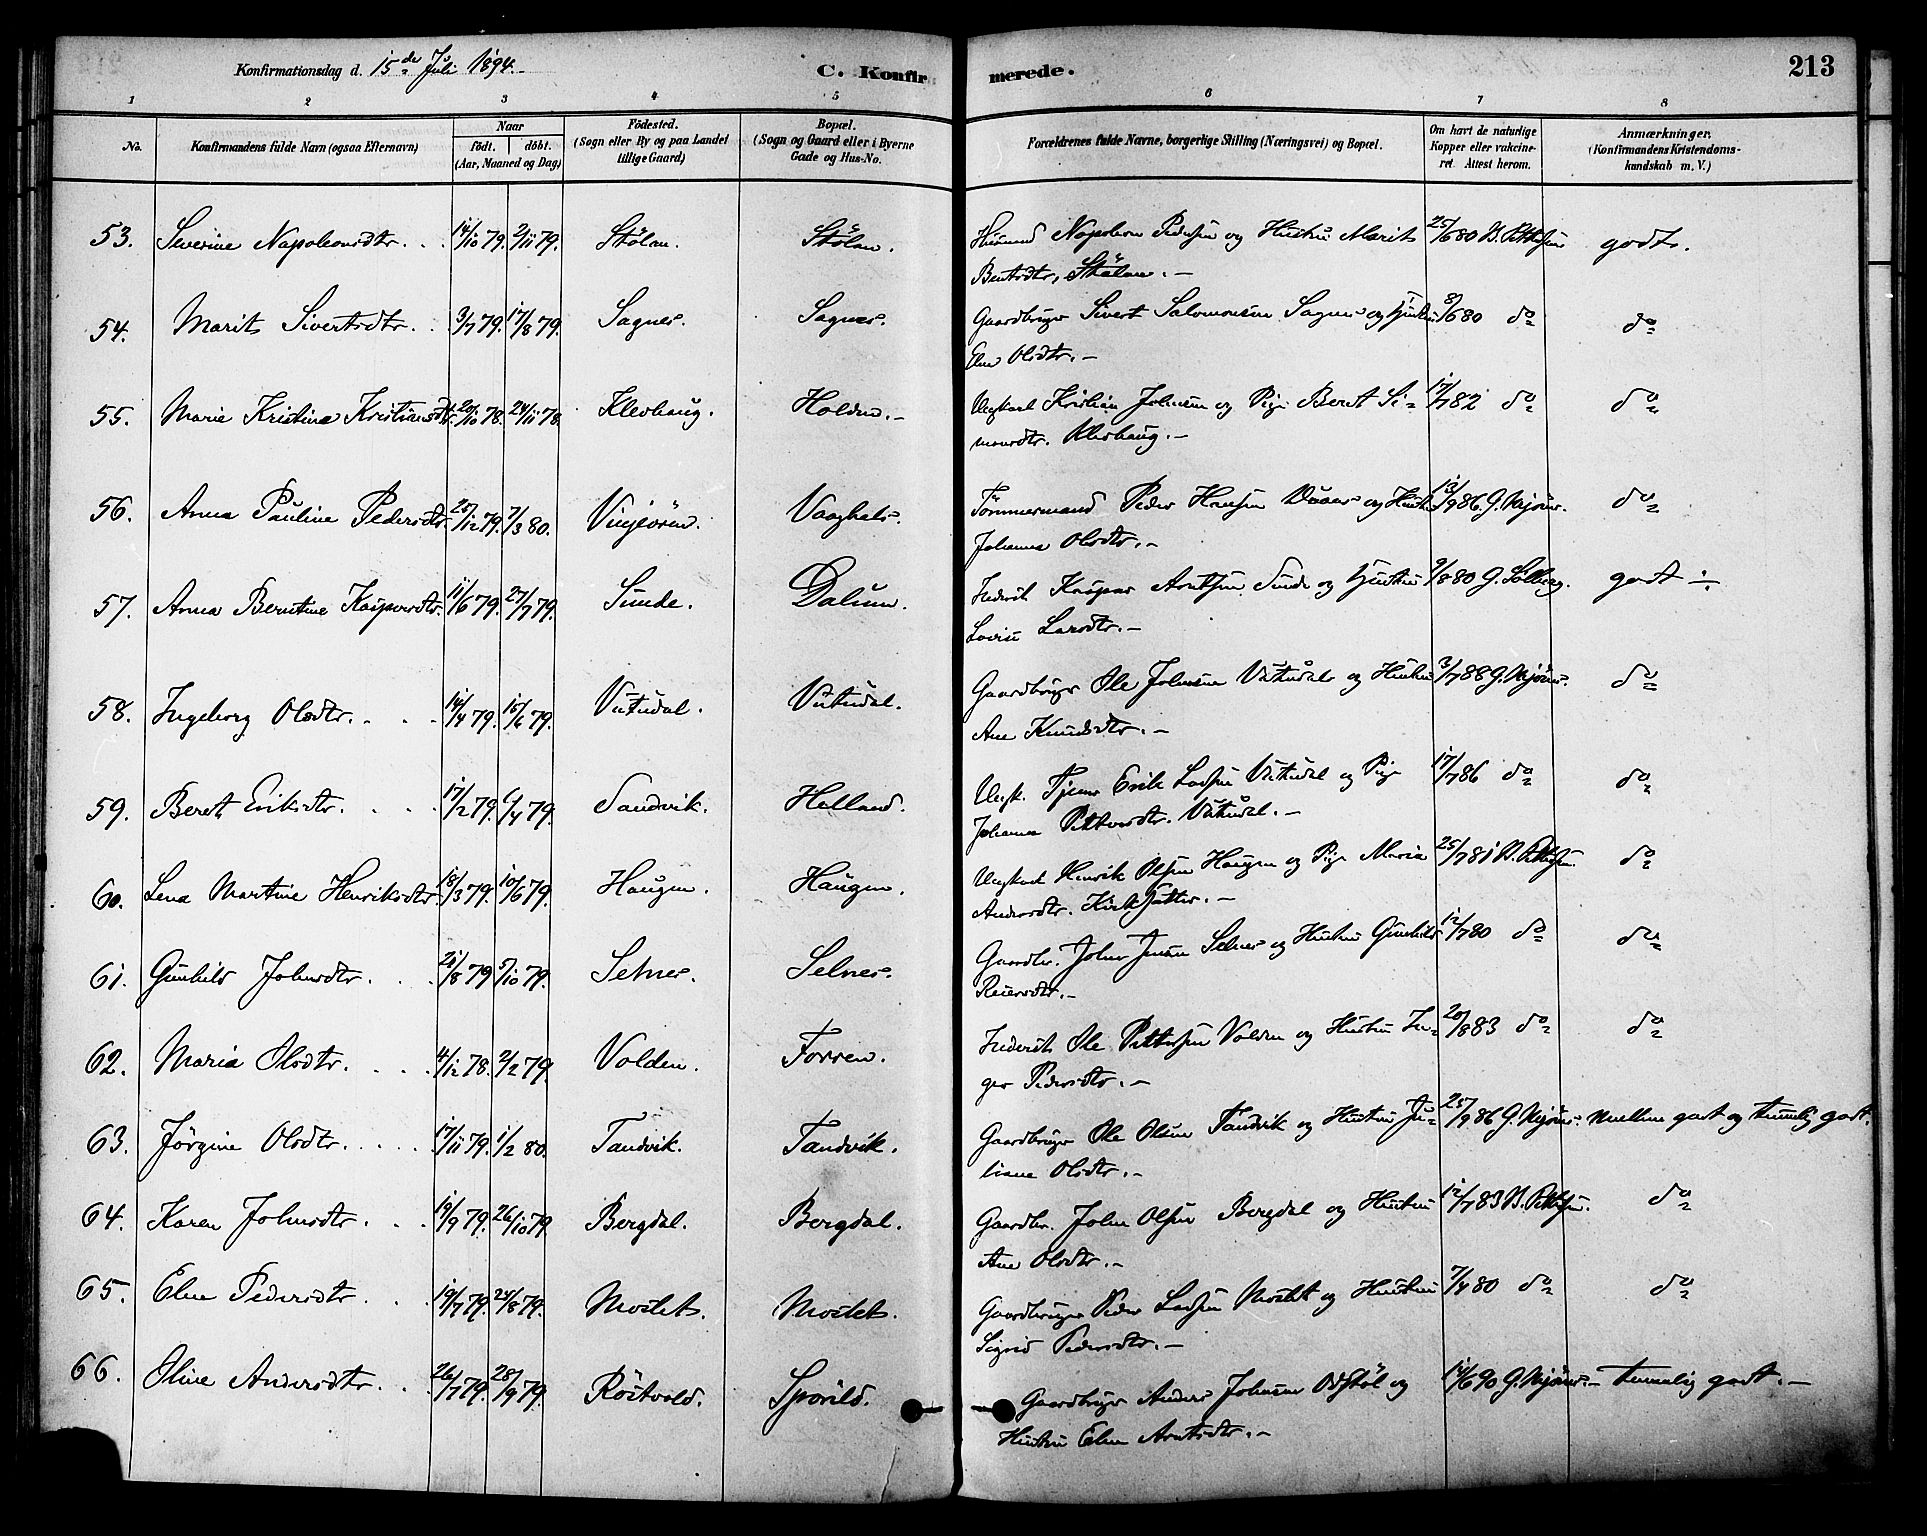 Konfirmationsdag d. 15de Juli 1894. C. Konfirmerede. 213
1 2 3 4 5 6 7 8
No. Konfirmandens fulde Navn (ogsaa Efternavn) Naar født. døbt. (Aar, Maaned og Dag) Fødested. (Sogn eller By og paa Landet tillige Gaard) Bopæl. (Sogn og Gaard eller i Byerne Gade og Hus-No. Forældrenes fulde Navne, borgerlige Stilling (Næringsvei) og Bopæl. Om havt de naturlige Kopper eller vakcineret. Attest herom. Anmærkninger. (Konfirmandens Kristendomskundskab m. V.)
53. Severine Napoleonsdtr. 14/10 79. 2/11 79. Stölan. Stölan. Husmd Napoleon Pedersen og Hustru Marit 25/6 80 B. Pettersen godt.
Bentsdtr, Stölan.
54. Marit Sivertsdtr. 3/7 79. 17/8 79. Sagnes. Sagnes. Gaardbruger Sivert Salomonsen Sagnes og Hustru 8/6 80 do do
Elen Olsdtr.
55. Marie Kristine Kristiansdtr. 20/10 78. 24/11 78. Klevhaug. Holden. Ungkarl Kristian Johnsen og Pige Beret Si= 17/7 82 do do
monsdtr. Klevhaug.
56. Anna Pauline Pedersdtr. 25/12 79. 7/3 80. Vinjeören. Vaaghals. Tömmermand Peder Hansen og Hustru 13/9 86. do
Johanna Olsdtr.
57. Anna Berntine Kaspersdtr. 11/6 79. 27/7 79. Sunde. Dalum. Inderst Kasper Arntsen Sunde og Hustru 9/8 80 G. Solberg. godt
Lovise Larsdtr.
58. Ingeborg Olsdtr. 14/4 79. 15/6 79. Vutudal. Vutudal. Gaardbruger Ole Johnsen Vutudal og Hustru 3/7 88 do
Ane Knudsdtr.
59. Beret Eriksdtr. 17/2 79. 6/4 79. Sandvik. Helland. Ungk. Tjener Erik Larsen Vutudal og Pige 17/7 86 do do
Johanna Pettersdtr. Vutudal.
60. Lena Martine Henriksdtr. 18/3 79. 10/6 79. Haugen. Haugen. Ungkarl Henrik Olsen Haugen og Pige Maria 25/7 81 B. Pettersen. do
Andersdtr. Kirksætter.
61. Gunhild Johnsdtr. 21/8 79 5/10 79. Selnes. Selnes. Gaardbr. John Jensen Selnes og Hustru Gunhild 12/7 80 do do
Reiersdtr.
62. Maria Olsdtr. 4/12 78. 2/2 79. Volden. Forren. Inderst Ole Pettersen Volden og Hustru In= 20/8 83 do do
ger Pedersdtr.
63. Jörgine Olsdtr. 17/11 79. 1/2 80. Tandvik. Tandvik. Gaardbruger Ole Olsen Tandvik og Hustru Ju= 25/9 86 mellem godt og temmelig godt.
liane Olsdtr.
64. Karen Johnsdtr. 19/9 79. 26/10 79. Bergdal. Bergdal. Gaardbr. John Olsen Bergdal og Hustru 12/7 83 B. Pettersen. do
Ane Olsdtr.
65. Elen Pedersdtr. 19/7 79. 24/8 79. Mostet. Mostet. Gaardbruger Peder Larsen Mostet og Hustru 7/7 80 do do
Sigrid Pedersdtr.
66. Oline Andersdtr. 26/7 79. 28/9 79. Röstvold. Spörild. Gaardbruger Anders Johnsen og 14/6 90 temmelig godt.
Hustru Elen Arntsdtr.